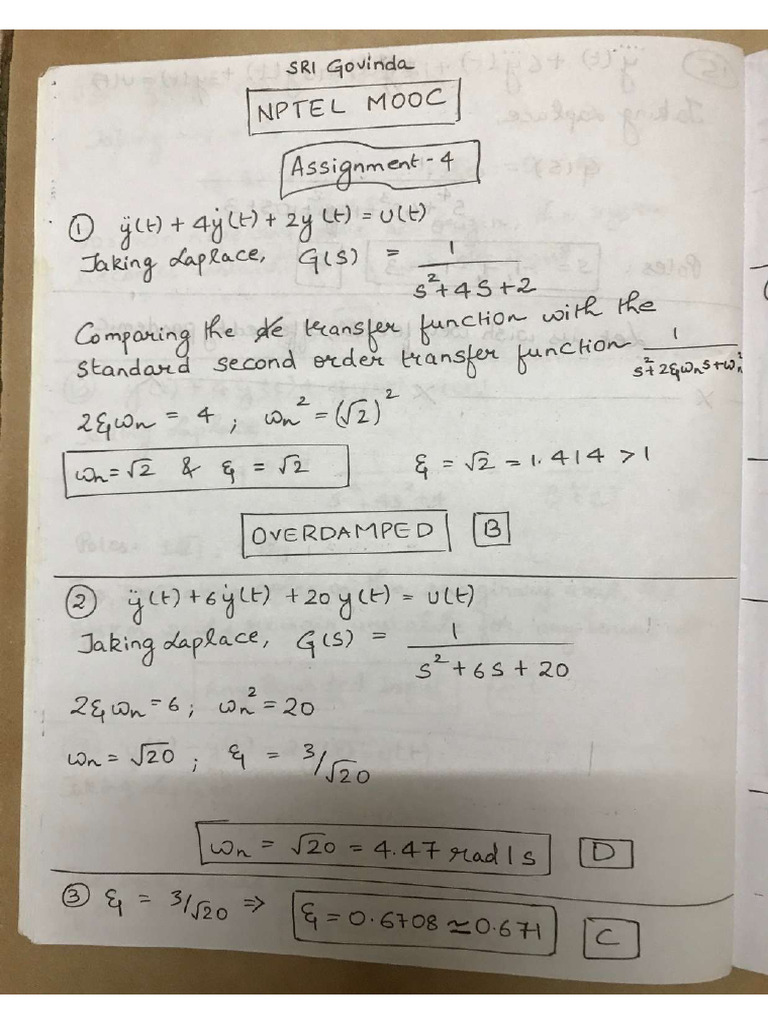 SRI Govinda
NPTEL MOOC
Assignment-4
① ÿ(t) + 4ẏ(t) + 2y(t) = u(t)
Taking Laplace, G(s) = 1/(s²+4s+2)
Comparing the transfer function with the
standard second order transfer function 1/(s²+2ξωₙs+ωₙ²)
2ξωₙ = 4 ; ωₙ² = (√2)²
ωₙ = √2 & ξ = √2 ξ = √2 = 1.414 > 1
OVERDAMPED B
② ÿ(t) + 6ẏ(t) + 20y(t) = u(t)
Taking Laplace, G(s) = 1/(s²+6s+20)
2ξωₙ = 6 ; ωₙ² = 20
ωₙ = √20 ; ξ = 3/√20
ωₙ = √20 = 4.47 rad/s D
③ ξ = 3/√20 => ξ = 0.6708 ≃ 0.671 C